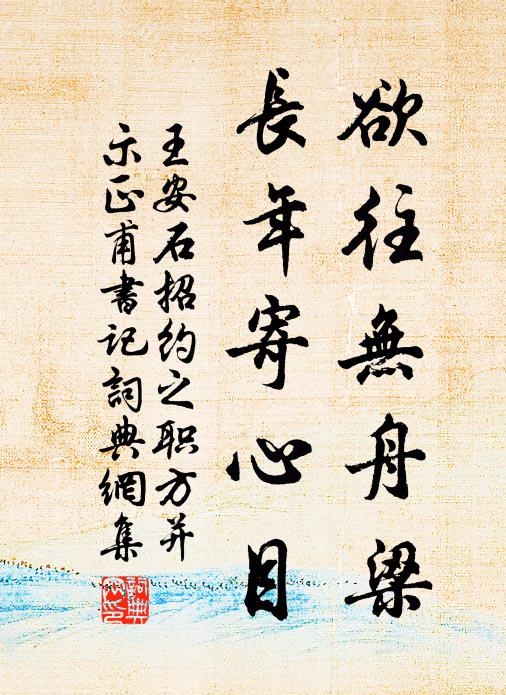 欲往無舟梁
長年寄心目
王安石招约之职方并
示正甫書记詞典網集